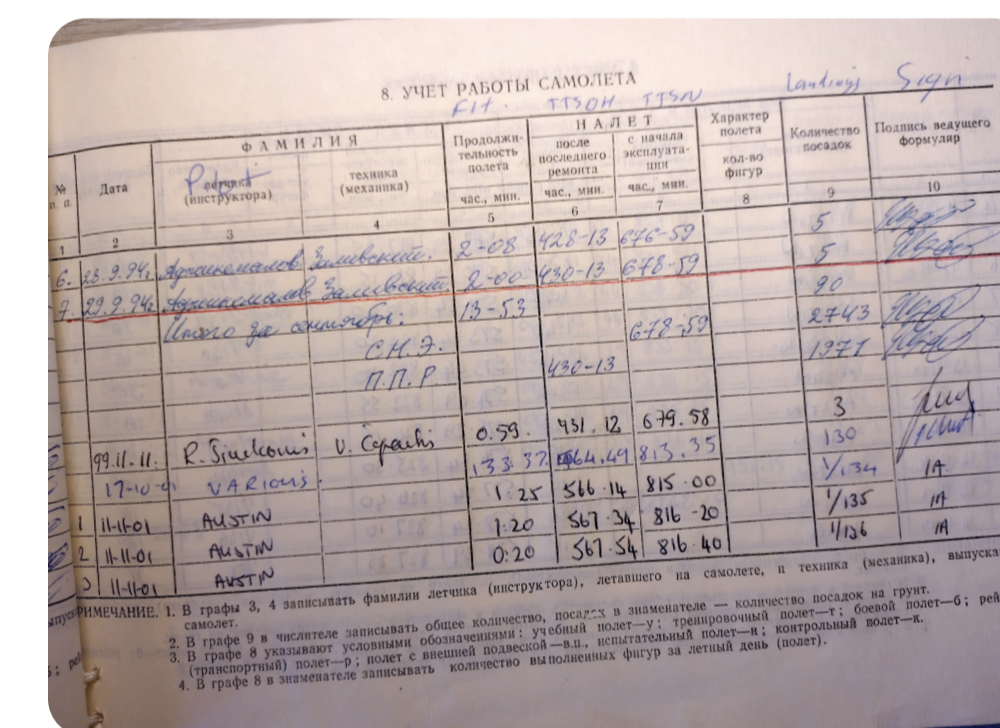 8. УЧЕТ РАБОТЫ САМОЛЕТА
Flt. TTSOH TTSN Landings Sign
№ п. п.
Дата
ФАМИЛИЯ
летчика (инструктора)
техника (механика)
Продолжи-
тельность
полета
час., мин.
НАЛЕТ
после
последнего
ремонта
час., мин.
с начала
эксплуата-
ции
час., мин.
Характер
полета
кол-во
фигур
Количество
посадок
Подпись ведущего
формуляр
1 2 3 4 5 6 7 8 9 10
6. 28.9.94г. Заливский. 2-08 428-13 676-59 5
7. 29.9.94г. Заливский. 2-00 430-13 678-59 5
Итого за сентябрь: 13-53 90
С.Н.Э. 678-59 2743
П.П.Р. 430-13 1971
99.11.11. R. V. 0.59. 431.12 679.58 3
17-10-01 VARIOUS. 133.37 564.49 813.35 130
1 11-11-01 AUSTIN 1:25 566.14 815.00 1/134 IA
2 11-11-01 AUSTIN 1:20 567.34 816.20 1/135 IA
3 11-11-01 AUSTIN 0:20 567.54 816.40 1/136 IA
РИМЕЧАНИЕ. 1. В графы 3, 4 записывать фамилии летчика (инструктора), летавшего на самолете, и техника (механика), выпуска
самолет.
2. В графе 9 в числителе записывать общее количество, посадок в знаменателе — количество посадок на грунт.
3. В графе 8 указывают условными обозначениями: учебный полет—у; тренировочный полет—т; боевой полет—б; рей
(транспортный) полет—р; полет с внешней подвеской—в.п., испытательный полет—и; контрольный полет—к.
4. В графе 8 в знаменателе записывать количество выполненных фигур за летный день (полет).